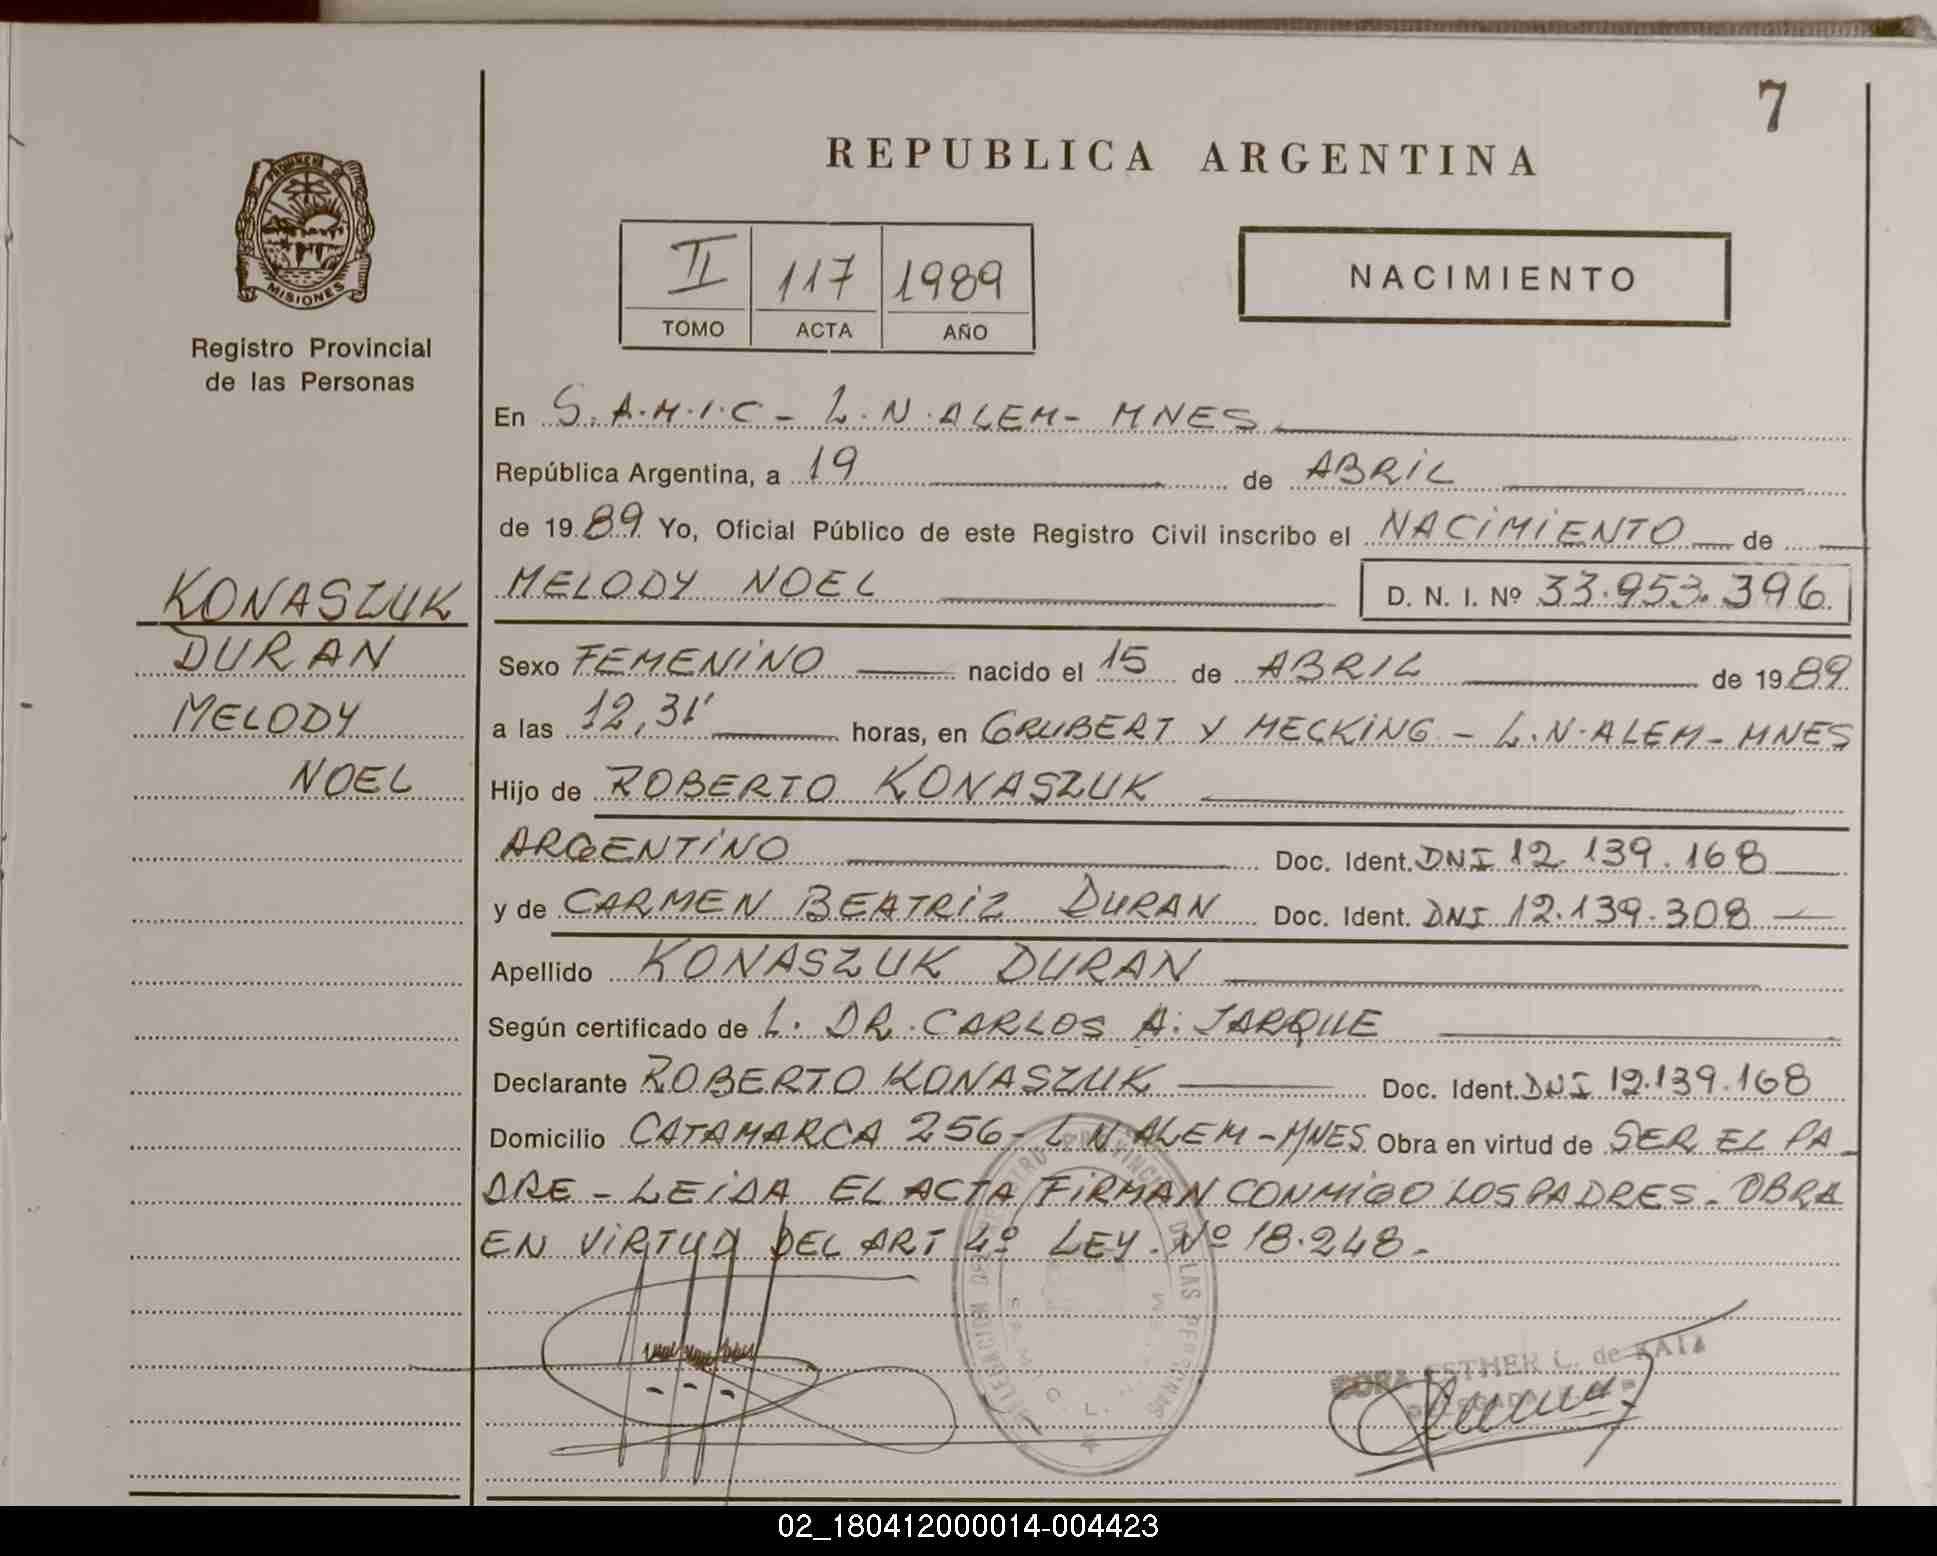 7
REPUBLICA ARGENTINA
II 117 1989
TOMO ACTA AÑO
NACIMIENTO
MISIONES
Registro Provincial
de las Personas
KONASZUK
DURAN
MELODY
NOEL
En S.A.M.I.C - L.N.ALEM - MNES
República Argentina, a 19 de ABRIL
de 1989 Yo, Oficial Público de este Registro Civil inscribo el NACIMIENTO de
MELODY NOEL D. N. I. Nº 33.953.396
Sexo FEMENINO nacido el 15 de ABRIL de 1989
a las 12,31' horas, en GRUBERT Y MECKING - L.N.ALEM - MNES
Hijo de ROBERTO KONASZUK
ARGENTINO Doc. Ident. DNI 12.139.168
y de CARMEN BEATRIZ DURAN Doc. Ident. DNI 12.139.308
Apellido KONASZUK DURAN
Según certificado de L. DR. CARLOS A. JARQUE
Declarante ROBERTO KONASZUK Doc. Ident. DNI 12.139.168
Domicilio CATAMARCA 256 - L N ALEM - MNES Obra en virtud de SER EL PA
DRE - LEIDA EL ACTA FIRMAN CONMIGO LOS PADRES - OBRA
EN VIRTUD DEL ART 4º LEY Nº 18.248 -
ESTHER L. de
02_180412000014-004423